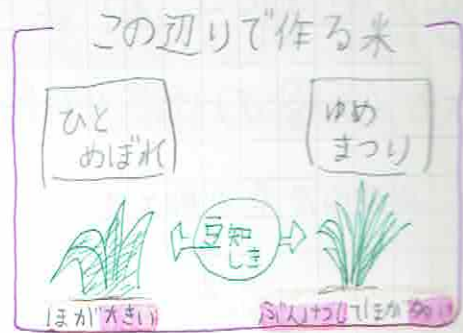 この辺りで作る米
ひと
めぼれ
ゆめ
まつり
豆知
しき
ほが大きい
ぶんけつしてほが